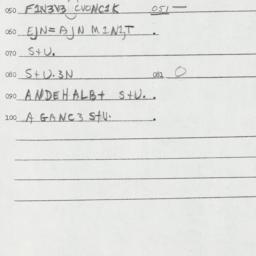 050 F1N3V3 CVONC1K 051 —
060 EJN= AJN M1N1,T .
070 S+U.
080 S+U.3N 081 O
090 ANDEHALB+ S+U. .
100 A GANC3 S+U. .